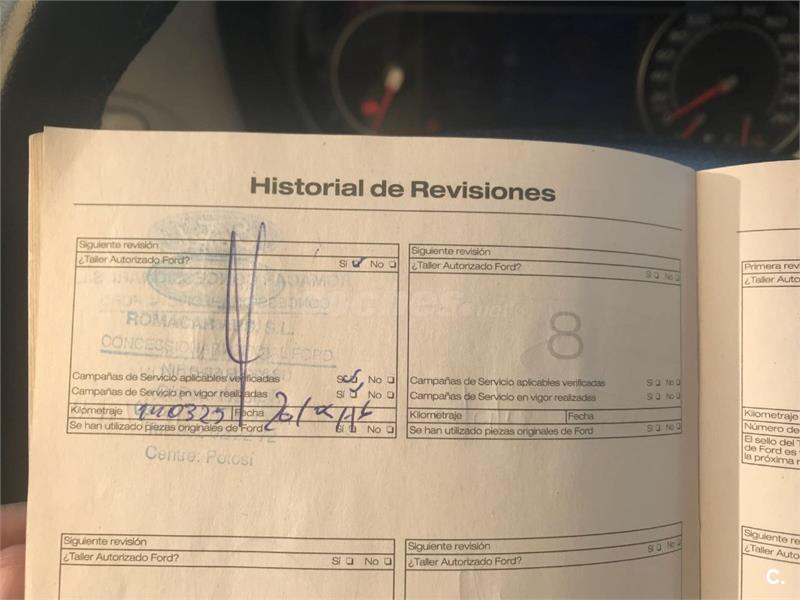 Historial de Revisiones
Siguiente revisión
¿Taller Autorizado Ford? Sí No
ROMACAR S.L.
CONCESSIONARI OFICIAL FORD
Campañas de Servicio aplicables verificadas Sí No
Campañas de Servicio en vigor realizadas Sí No
Kilómetraje 140325 Fecha
Se han utilizado piezas originales de Ford Sí No
Centre: Potosí
Siguiente revisión
¿Taller Autorizado Ford? Sí No
8
Campañas de Servicio aplicables verificadas Sí No
Campañas de Servicio en vigor realizadas Sí No
Kilómetraje Fecha
Se han utilizado piezas originales de Ford Sí No
Primera rev
¿Taller Auto
Kilometraje
Número de
El sello del T
de Ford es
la próxima r
Siguiente revisión
¿Taller Autorizado Ford? Sí No
Siguiente revisión
¿Taller Autorizado Ford? Sí No
Siguiente re
¿Taller Auto
C.